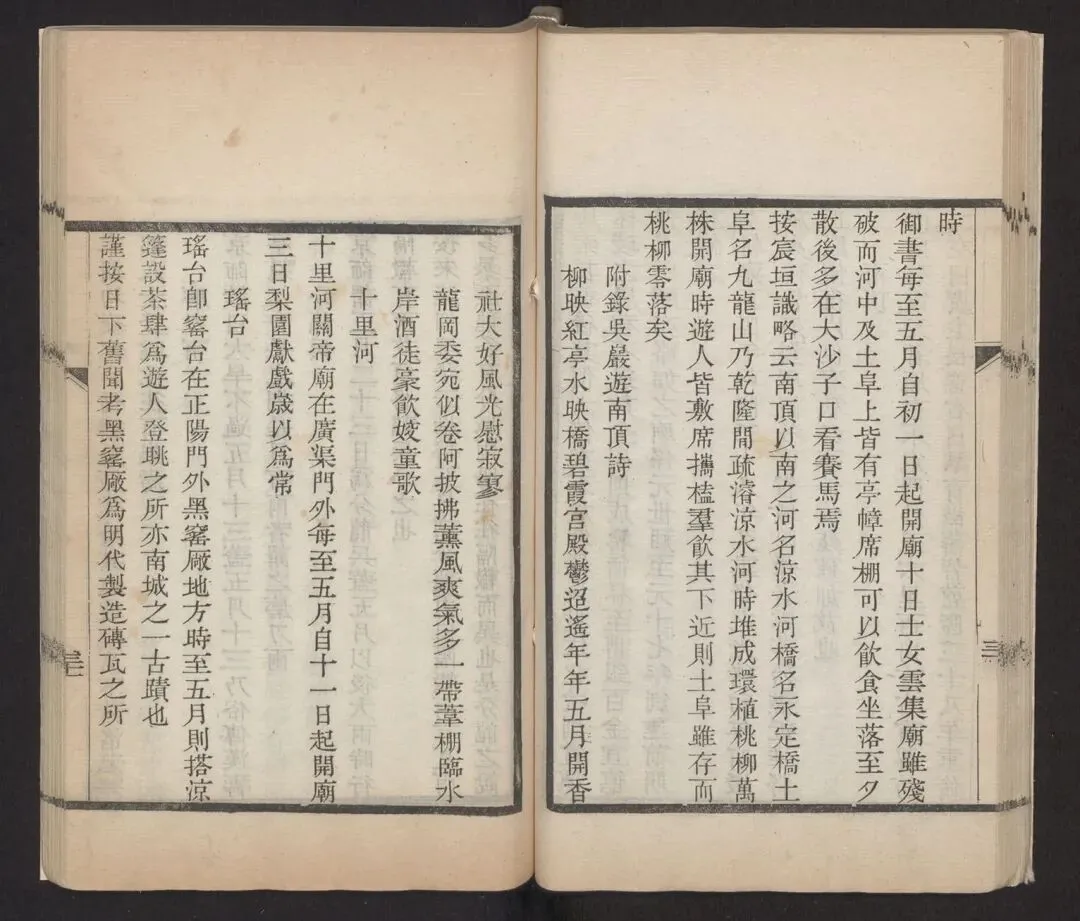 時
御書每至五月自初一日起開廟十日士女雲集廟雖殘
破而河中及土阜上皆有亭幛席棚可以飲食坐落至夕
散後多在大沙子口看賽馬焉
按宸垣識略云南頂以南之河名涼水河橋名永定橋土
阜名九龍山乃乾隆間疏濬涼水河時堆成環植桃柳萬
株開廟時遊人皆敷席攜榼羣飲其下近則土阜雖存而
桃柳零落矣
附錄吳巖遊南頂詩
柳映紅亭水映橋碧霞宮殿鬱迢遙年年五月開香
三
社大好風光慰寂寥
龍岡委宛似卷阿披拂薰風爽氣多一帶葦棚臨水
岸酒徒豪飲婈童歌
十里河
十里河關帝廟在廣渠門外每至五月自十一日起開廟
三日梨園獻戲歲以為常
瑤台
瑤台卽窰台在正陽門外黑窰厰地方時至五月則搭涼
篷設茶肆爲遊人登眺之所亦南城之一古蹟也
謹按日下舊聞考黑窰厰爲明代製造磚瓦之所